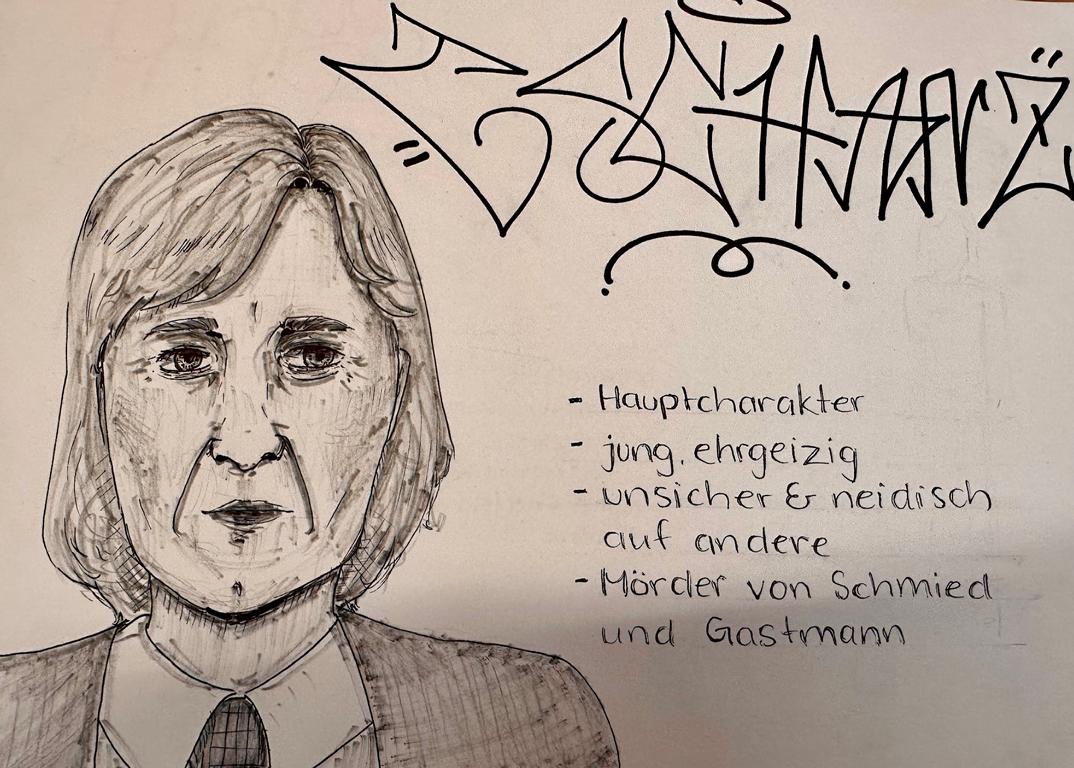 TSCHANZ
- Hauptcharakter
- jung, ehrgeizig
- unsicher & neidisch
auf andere
- Mörder von Schmied
und Gastmann